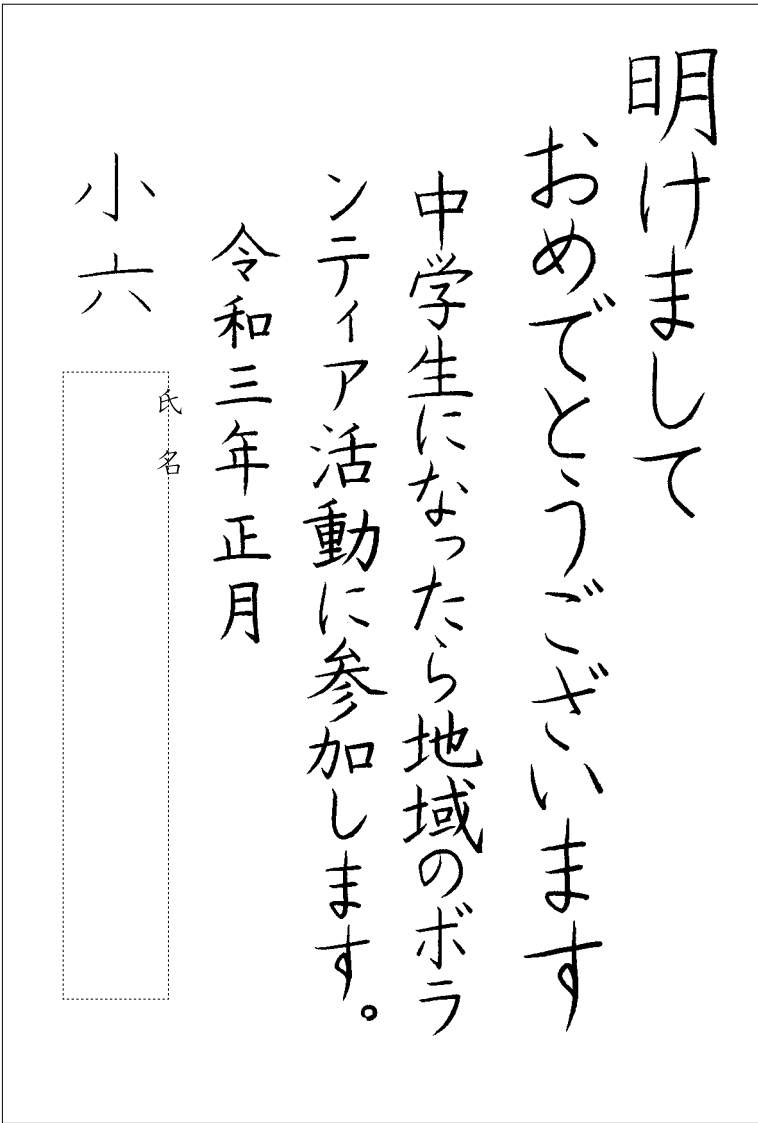 明けまして
おめでとうございます
中学生になったら地域のボラ
ンティア活動に参加します。
令和三年正月
小六
氏名